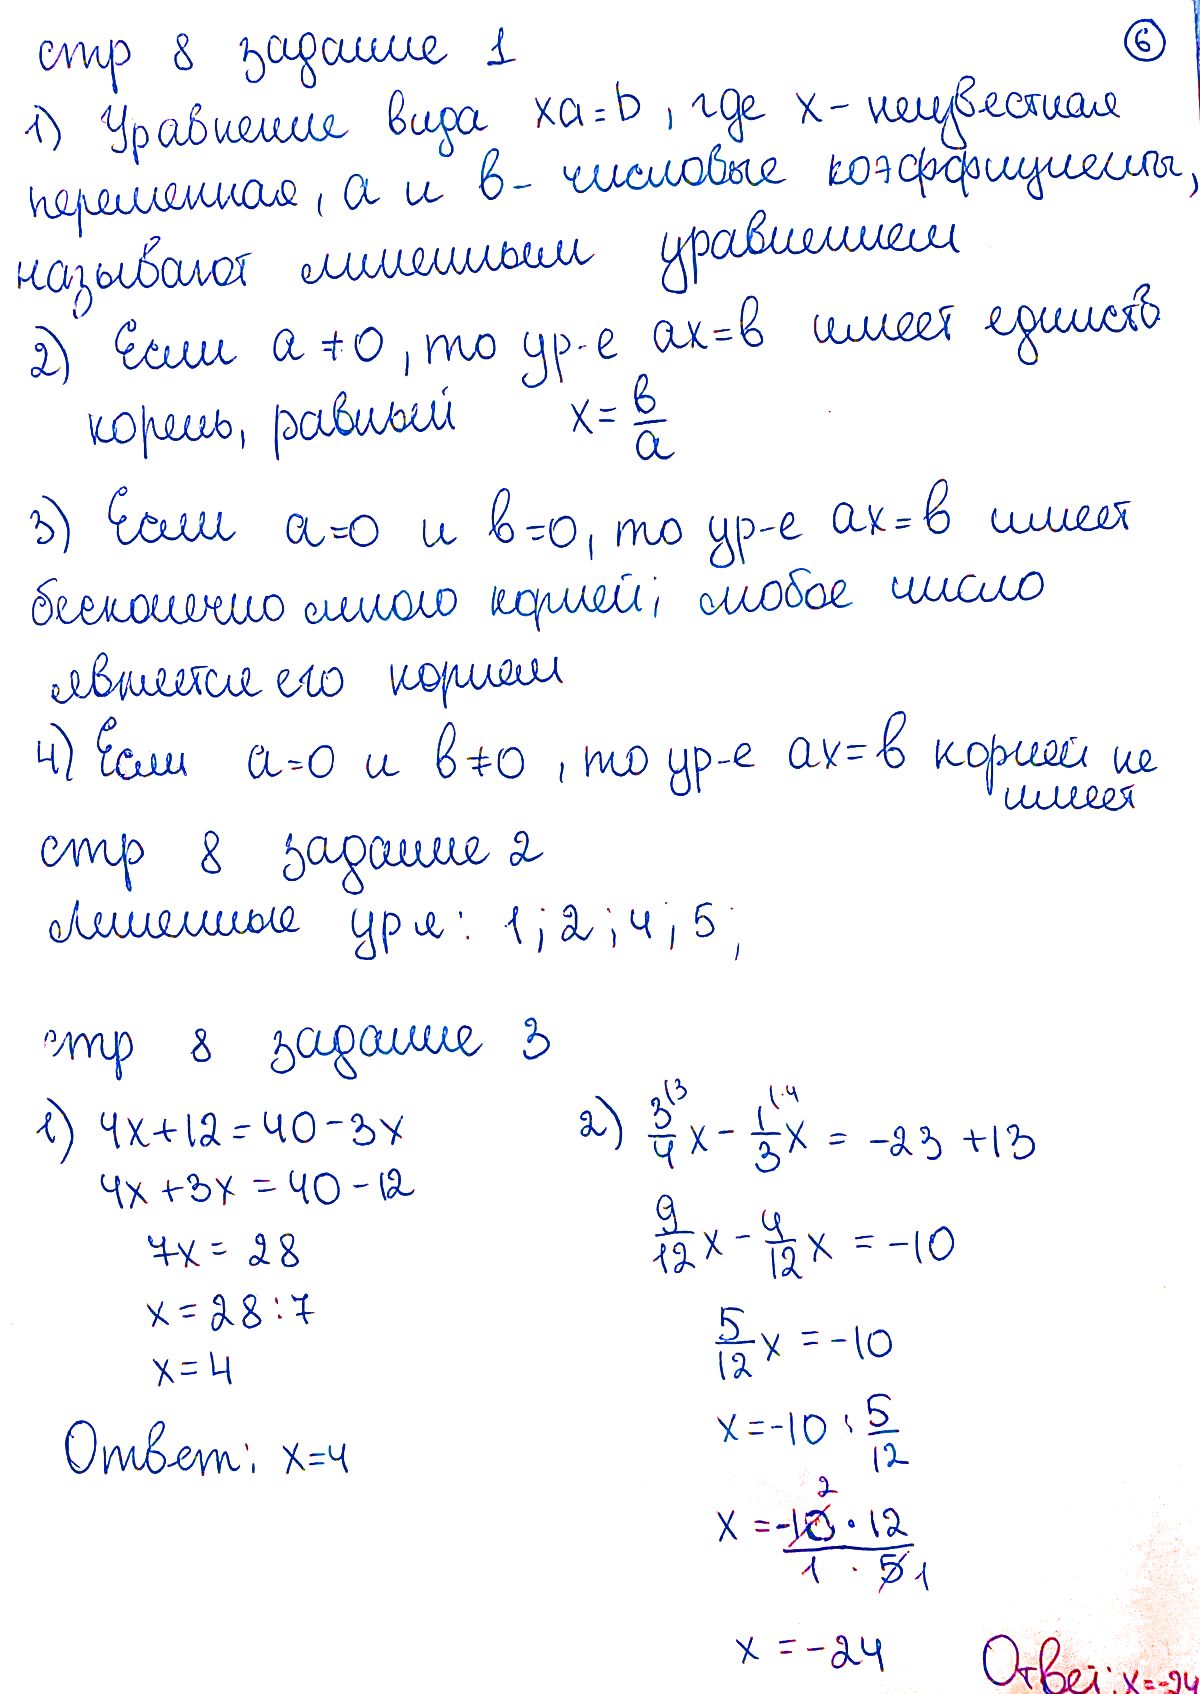 6
стр 8 задание 1
1) Уравнение вида xa=b, где x - неизвестная
переменная, a и b - числовые коэффициенты,
называют линейным уравнением
2) Если a≠0, то ур-е ax=b имеет единств
корень, равный x = b/a
3) Если a=0 и b=0, то ур-е ax=b имеет
бесконечно много корней; любое число
является его корнем
4) Если a=0 и b≠0, то ур-е ax=b корней не
имеет
стр 8 задание 2
Линейные ур я: 1; 2; 4; 5;
стр 8 задание 3
1) 4x+12=40-3x
4x+3x=40-12
7x=28
x=28:7
x=4
Ответ: x=4
2) 3/4 (3 x - 1/3 (·4 x = -23+13
9/12 x - 4/12 x = -10
5/12 x = -10
x=-10 : 5/12
2
x = -10·12 / 1·5 1
x = -24
Ответ: x=-24